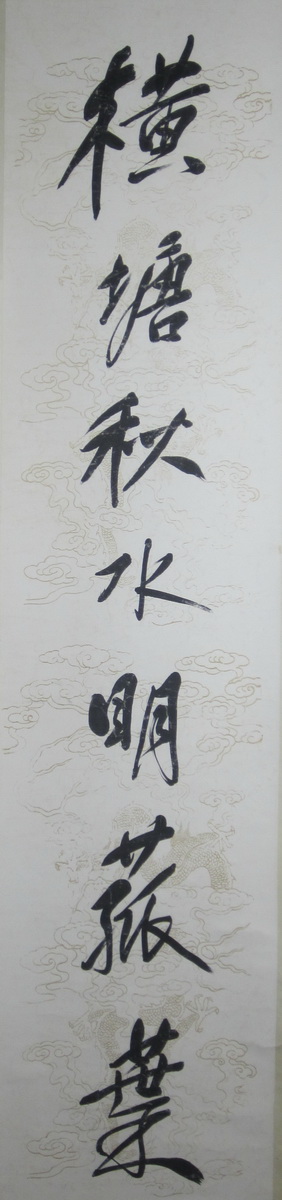 橫塘秋水明菰葉